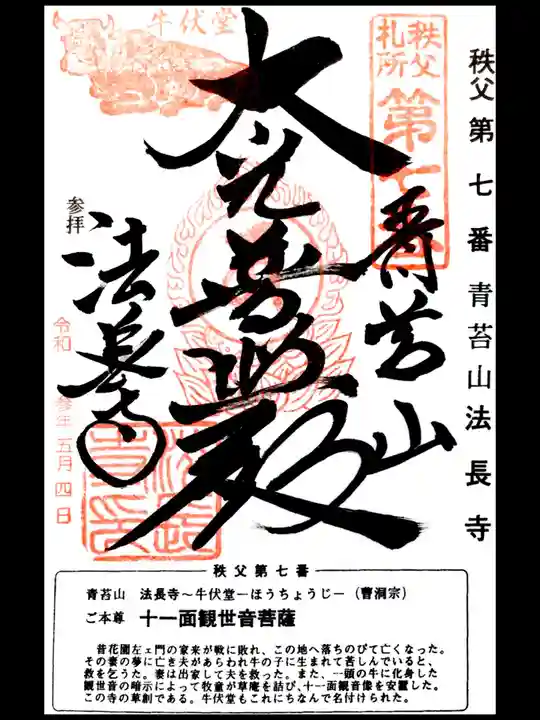 秩父第七番 青苔山法長寺
秩父
札所
第七番
牛伏堂
青苔山
大光普照殿
参拝
法長寺
令和 参年 五月四日
秩父第七番
青苔山 法長寺～牛伏堂―ほうちょうじ―(曹洞宗)
ご本尊 十一面観世音菩薩
昔花園左ェ門の家来が戦に敗れ、この地へ落ちのびて亡くなった。
その妻の夢に亡き夫があらわれ牛の子に生まれて苦しんでいると、
救を乞うた。妻は出家して夫を救った。また、一頭の牛に化身した
観世音の暗示によって牧童が草庵を詰び、十一面観音像を安置した。
この寺の草創である。牛伏堂もこれにちなんで名付けられた。